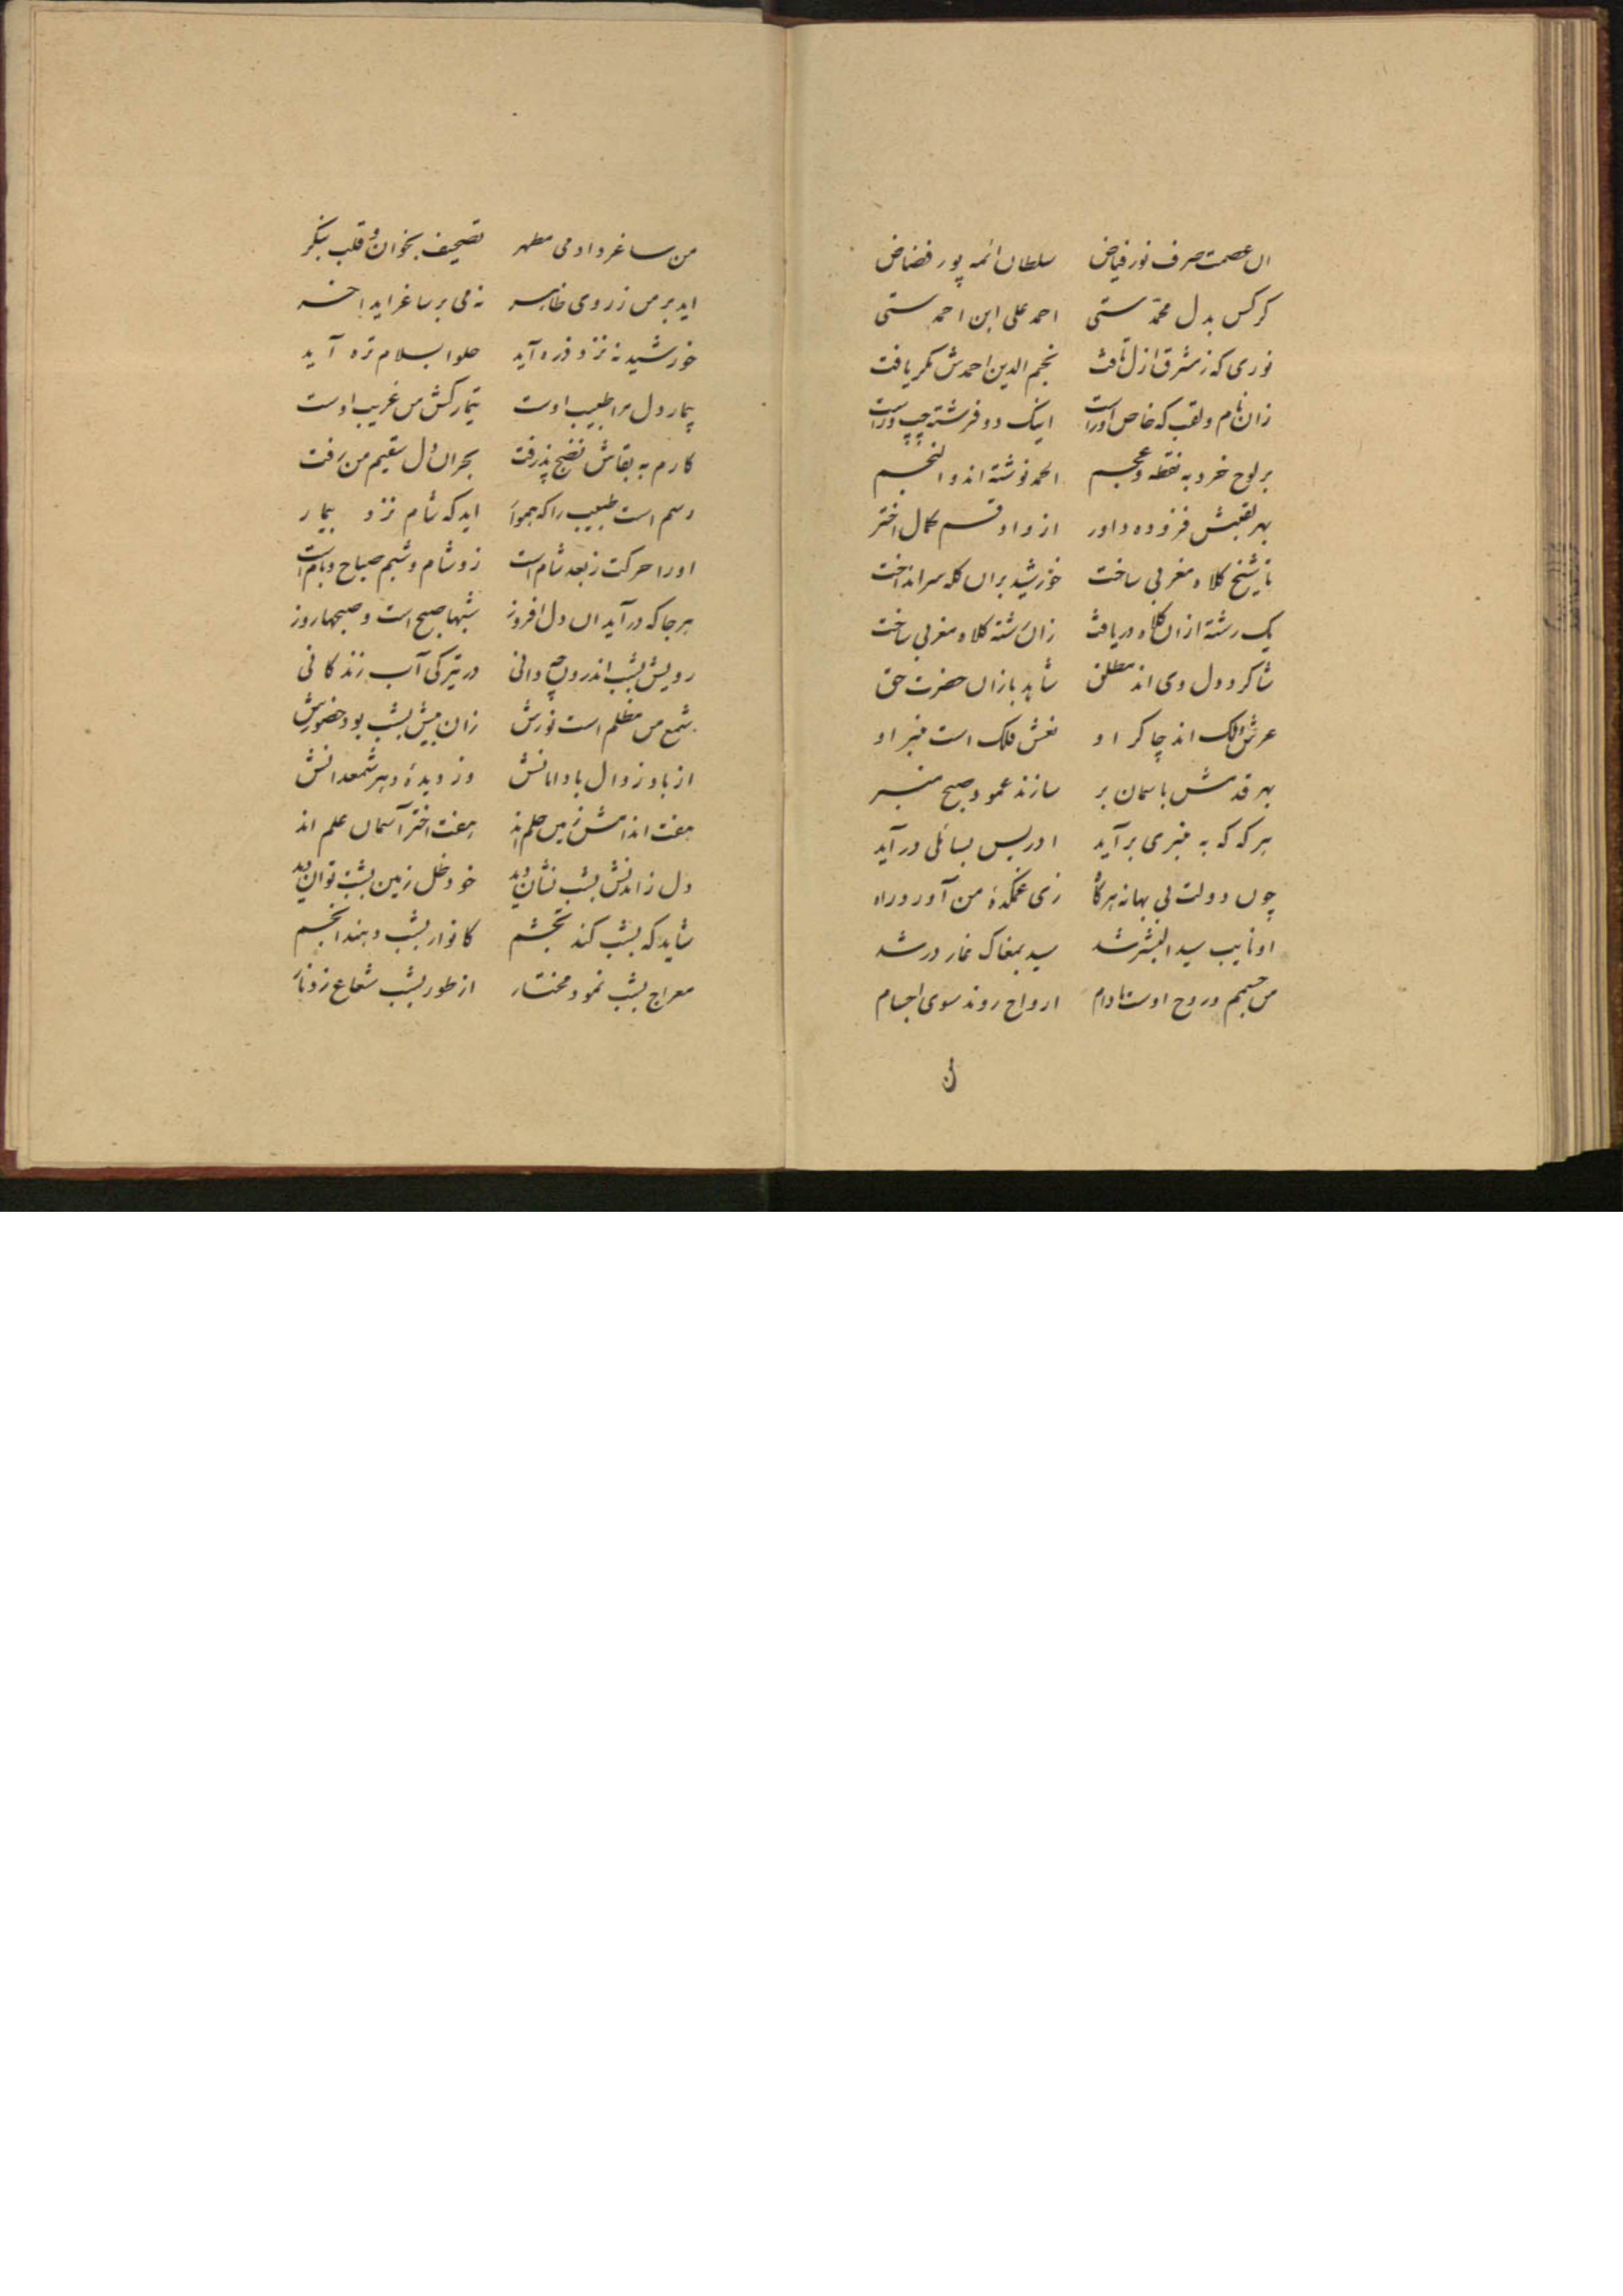 ان عصمت صرف نور فیاض سلطان ائمه پور فضاض
کرکس بدل محمدستی احمد علی ابن احمدستی
نوری که زمشرق ازل تافت نجم الدین احمدش مکر یافت
زان نام و لقب که خاص اوراست اینک دو فرشته چپ و راست
بر لوح خرد به نقطه و عجم الحمد نوشته اند و النجم
بهر لقبش فزوده داور از واو قسم کمال اختر
شیخ کلاه مغربی ساخت خورشید بران کله سر انداخت
یک رشته ازان کلاه دریافت زان رشته کلاه مغربی ساخت
شاکرد دل وی اند مطلق شاید بازان حضرت حق
عرش و فلک اند چاکر او نعش فلک است منبر او
بهر قدمش باسمان بر سازند عمود صبح منبر
هرکه که به منبری برآید ادریس بسائلی درآید
چون دولت بی بهانه هرکاه زی غمکدهٔ من آورد راه
او نایب سید البشر شد سید بمغاک غار در شد
من جسمم و روح اوست مادام ارواح روند سوی اجسام
من ساغر و او می مطهر تصحیف بخوان و قلب بنکر
اید بر من ز روی ظاهر نه می بر ساغر اید اخر
خورشید نه نزد ذره آید حلوا بسلام تره آید
بیمار دل مرا طبیب اوست تیمارکش من غریب اوست
کارم به بقاش نضج پذرفت بحران دل سقیم من رفت
رسم است طبیب را که هموار اید که شام نزد بیمار
اورا حرکت ز بعد شام است زو شام و شبم صباح و بام است
هرجا که درآید ان دل افروز شبها صبح است و صبحها روز
رویش بشب اندرون چه دانی در تیرکی آب زندکانی
شمع من مظلم است نورش زان بیش بشب بود حضورش
از باد زوال باد امانش وز دیدهٔ دهر شمعدانش
هفت اندامش زمین حلم اند هفت اختر آسمان علم اند
دل زاندنش بشب نشان دید خود ظل زمین بشب توان دید
شاید که بشب کند تجشم کانوار بشب دهند انجم
معراج بشب نمود مختار از طور بشب شعاع زد نار